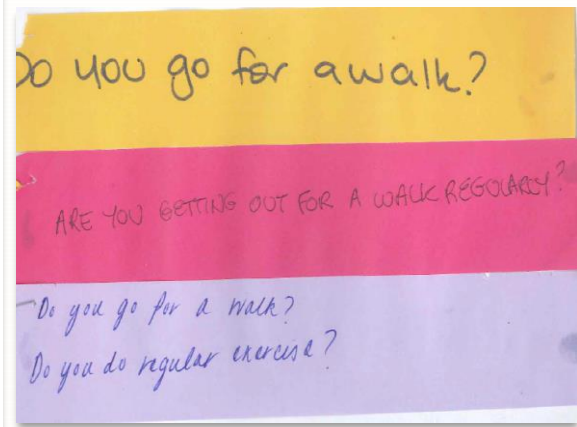 Do you go for a walk?
ARE YOU GETTING OUT FOR A WALK REGULARLY?
Do you go for a walk?
Do you do regular exercise?